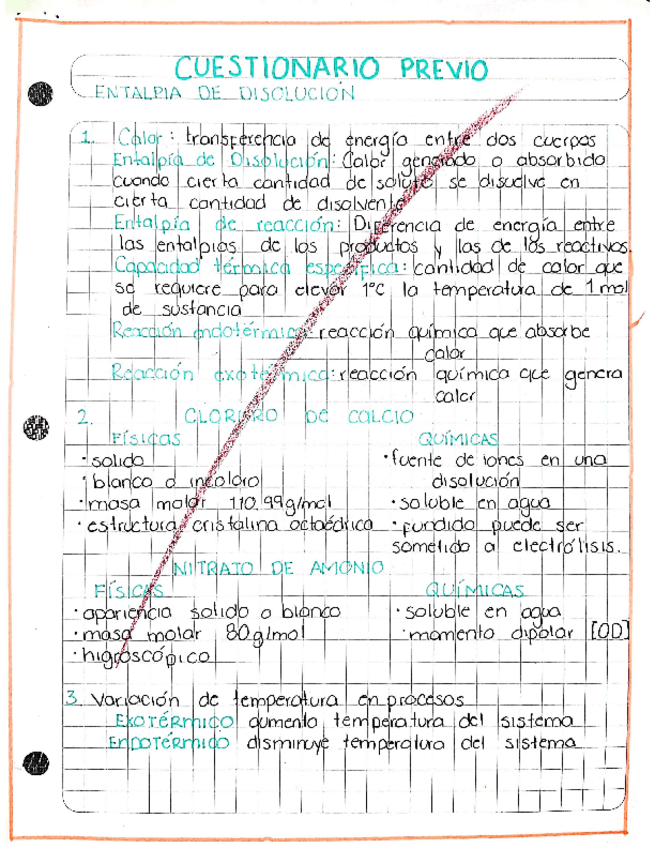 CUESTIONARIO PREVIO
ENTALPIA DE DISOLUCIÓN
1. Calor: transferencia de energía entre dos cuerpos
Entalpía de Disolución: Calor generado o absorbido
cuando cierta cantidad de soluto se disuelve en
cierta cantidad de disolvente
Entalpía de reacción: Diferencia de energía entre
las entalpias de los productos y las de los reactivos.
Capacidad térmica específica: cantidad de calor que
se requiere para elevar 1°C la temperatura de 1 mol
de sustancia
Reacción endotérmica: reacción química que absorbe
calor
Reacción exotérmica: reacción química que genera
calor
2. CLORURO DE CALCIO
FÍSICAS QUÍMICAS
· solido · fuente de iones en una
· blanco o incoloro disolución
· masa molar 110.99g/mol · soluble en agua
· estructura cristalina octaédrica · fundido puede ser
sometido a electrólisis.
NITRATO DE AMONIO
FÍSICAS QUÍMICAS
· apariencia solido o blanco · soluble en agua
· masa molar 80g/mol · momento dipolar [OD]
· higroscópico
3. Variación de temperatura en procesos
EXOTÉRMICO aumento temperatura del sistema
ENDOTÉRMICO disminuye temperatura del sistema